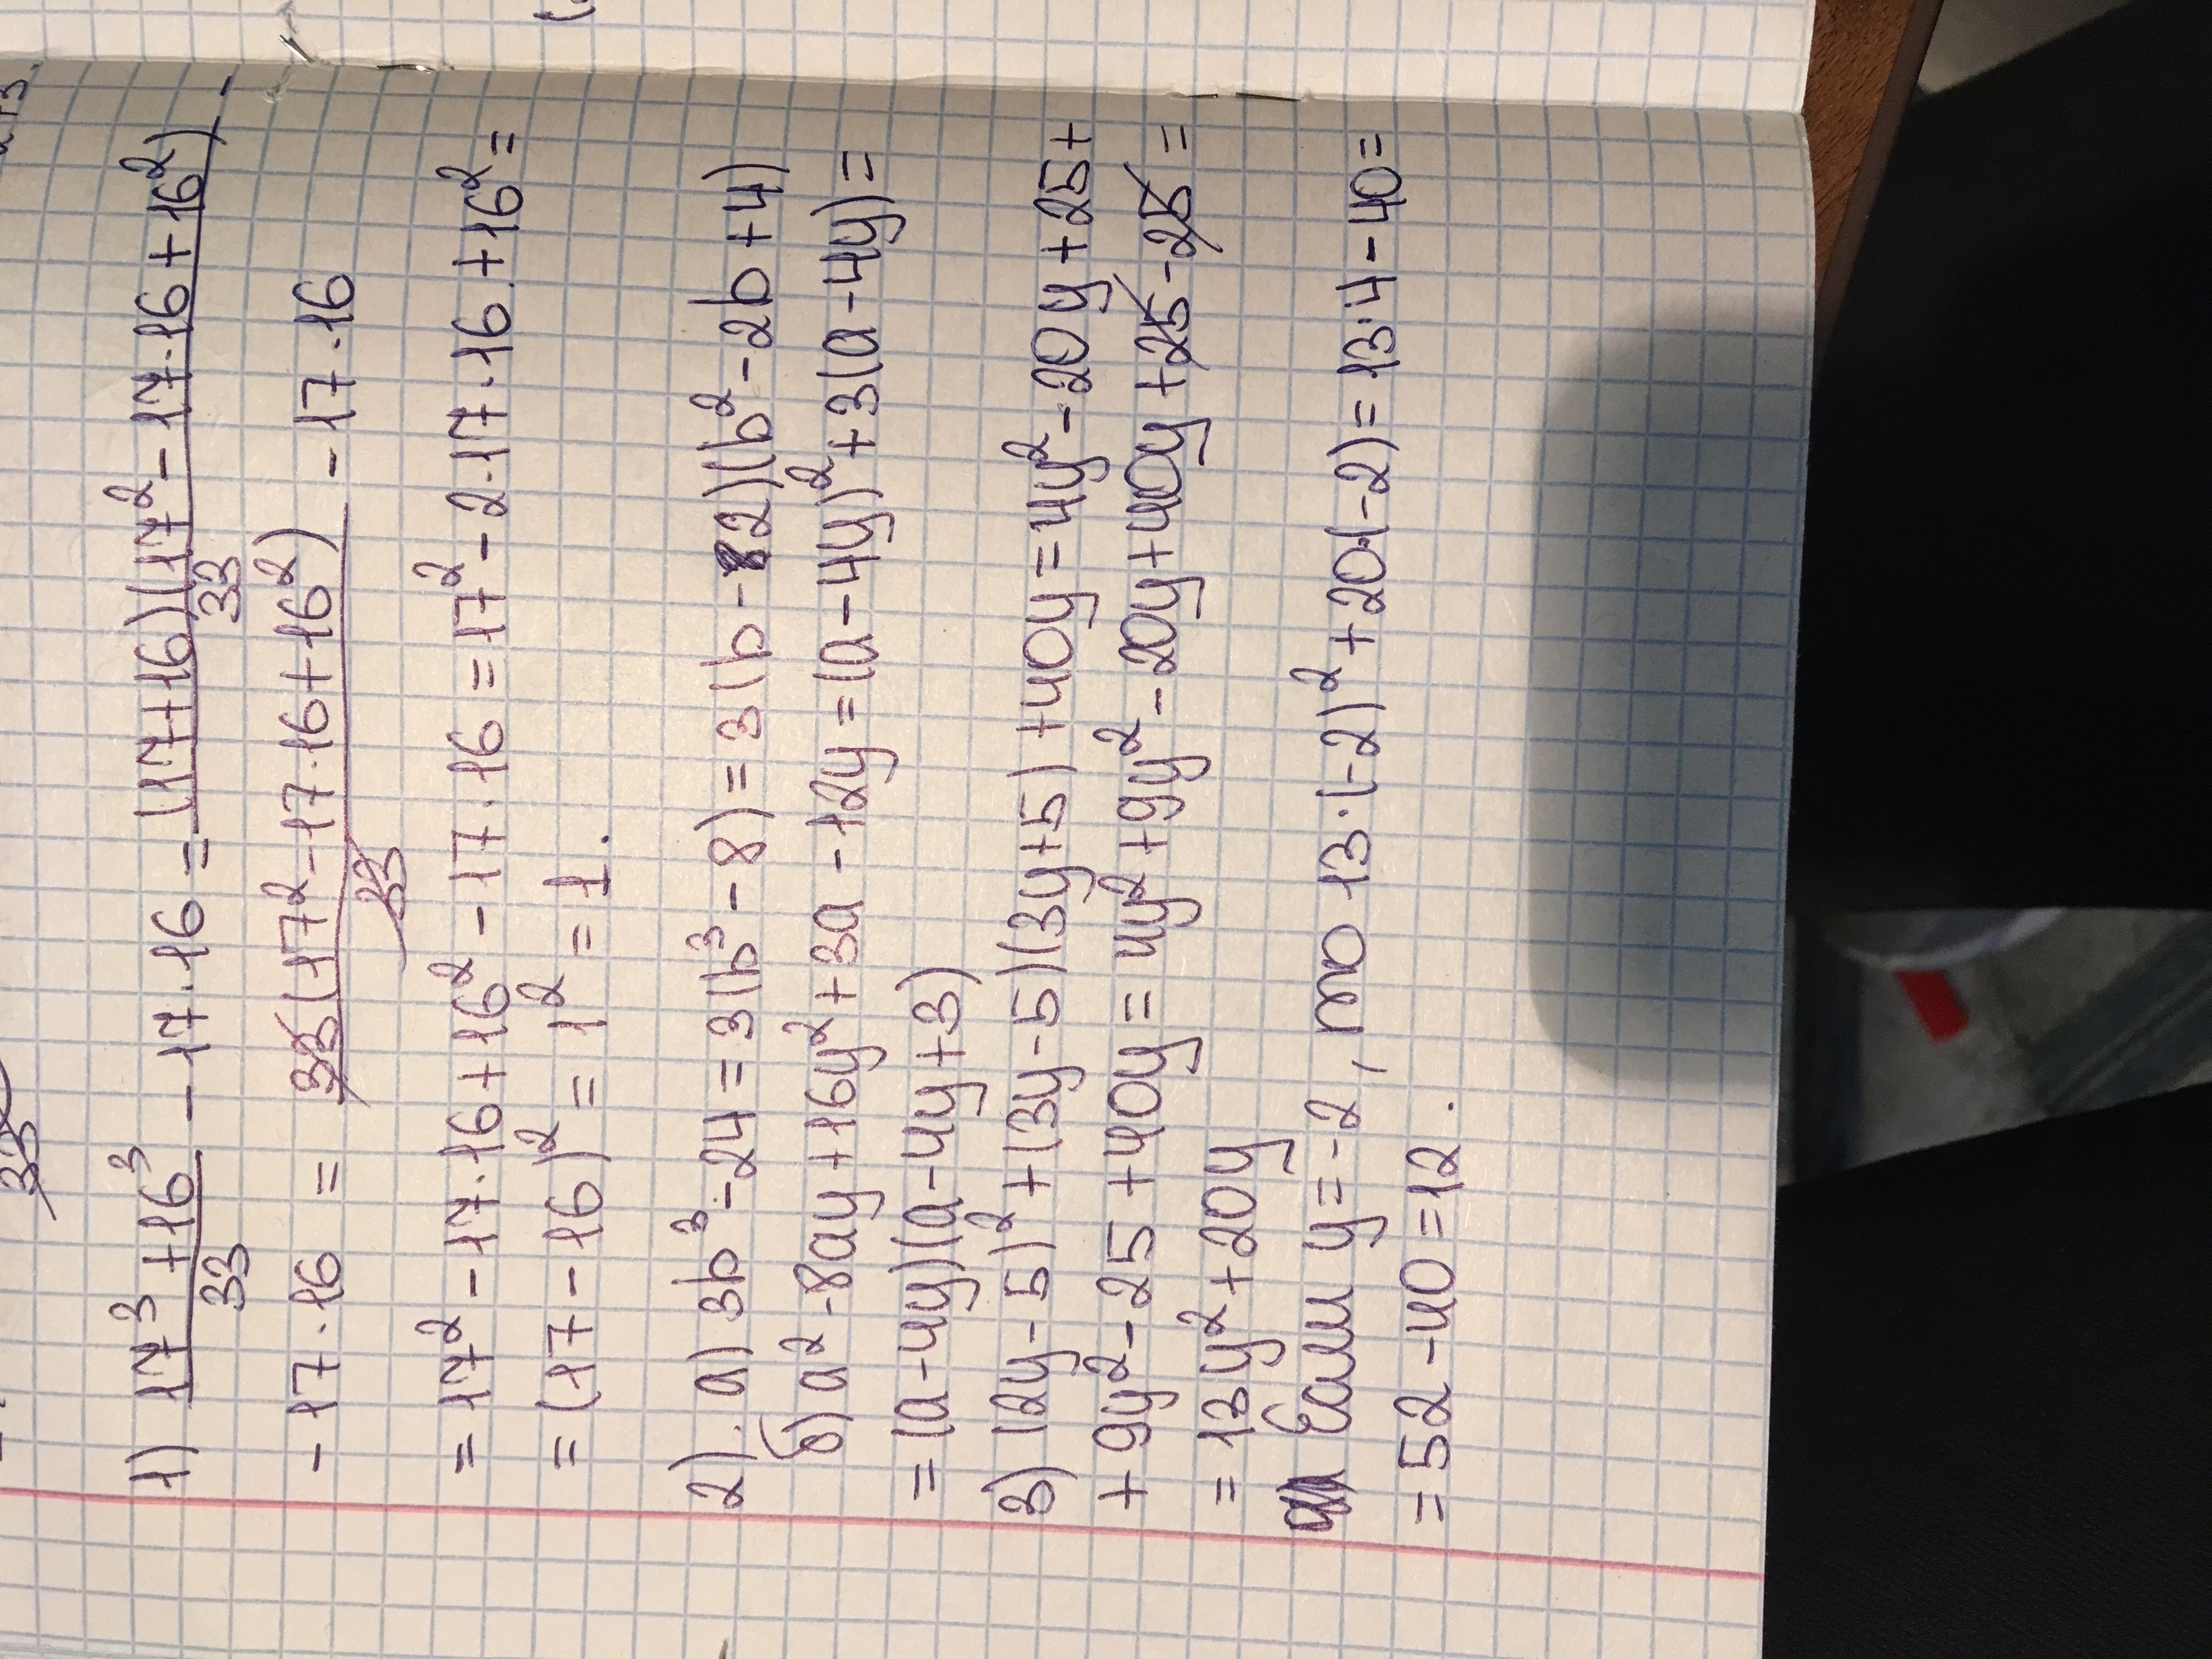 33
1) 17³+16³ / 33 - 17·16 = (17+16)(17²-17·16+16²) / 33 -
- 17·16 = 33(17²-17·16+16²) / 33 - 17·16
= 17²-17·16+16²-17·16 = 17²-2·17·16+16² =
= (17-16)² = 1² = 1.
2). а) 3b³-24 = 3(b³-8) = 3(b-2)(b²-2b+4)
б) a²-8ay+16y²+3a-12y = (a-4y)²+3(a-4y) =
= (a-4y)(a-4y+3)
3) (2y-5)²+(3y-5)(3y+5)+40y = 4y²-20y+25+
+9y²-25+40y = 4y²+9y²-20y+40y+25-25 =
= 13y²+20y
Если y=-2, то 13·(-2)²+20·(-2) = 13·4-40 =
= 52-40 = 12.